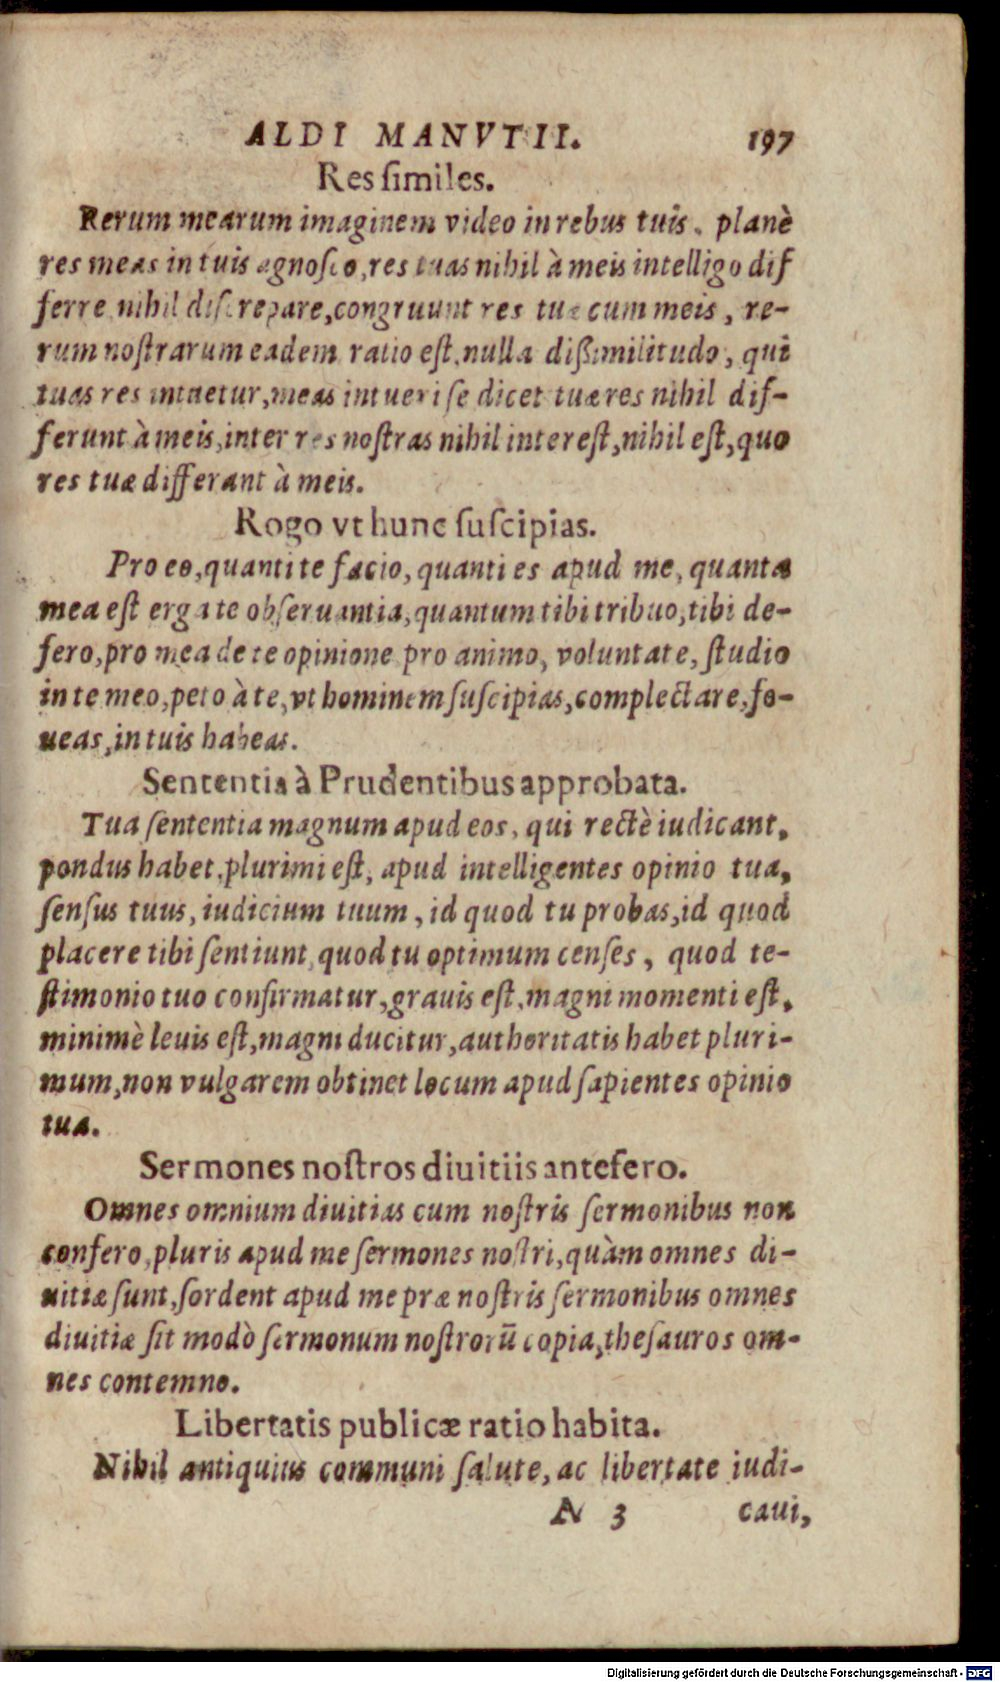 ALDI MANVTII. 197
Res ſimiles.
Rerum mearum imaginem video in rebus tuis. planè
res meas in tuis agnoſco, res tuas nihil à meis intelligo dif
ferre nihil diſcrepare, congruunt res tuæ cum meis, re-
rum noſtrarum eadem ratio eſt, nulla dißimilitudo, qui
tuas res intuetur, meas intueri ſe dicet tuæ res nihil dif-
ferunt à meis, inter res noſtras nihil intereſt, nihil eſt, quo
res tuæ differant à meis.
Rogo vt hunc ſuſcipias.
Pro eo, quanti te facio, quanti es apud me, quanta
mea eſt erga te obſeruantia, quantum tibi tribuo, tibi de-
fero, pro mea de te opinione pro animo, voluntate, ſtudio
in te meo, peto à te, vt hominem ſuſcipias, complectare, fo-
ueas, in tuis habeas.
Sententia à Prudentibus approbata.
Tua ſententia magnum apud eos, qui rectè iudicant,
pondus habet, plurimi eſt, apud intelligentes opinio tua,
ſenſus tuus, iudicium tuum, id quod tu probas, id quod
placere tibi ſentiunt, quod tu optimum cenſes, quod te-
ſtimonio tuo confirmatur, grauis eſt, magni momenti eſt,
minimè leuis eſt, magni ducitur, authoritatis habet pluri-
mum, non vulgarem obtinet locum apud ſapientes opinio
tua.
Sermones noſtros diuitiis antefero.
Omnes omnium diuitias cum noſtris ſermonibus non
confero, pluris apud me ſermones noſtri, quàm omnes di-
uitiæ ſunt, ſordent apud me præ noſtris ſermonibus omnes
diuitiæ ſit modò ſermonum noſtrorū copia, theſauros om-
nes contemno.
Libertatis publicæ ratio habita.
Nihil antiquius communi ſalute, ac libertate iudi-
N 3 caui,
Digitalisierung gefördert durch die Deutsche Forschungsgemeinschaft - DFG